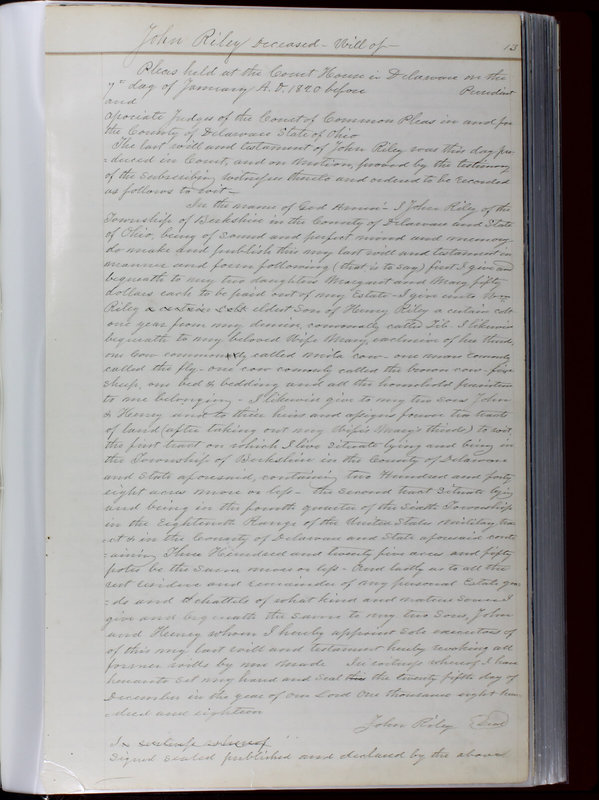 John Riley Deceased - Will of -
13
Pleas held at the Court House in Delaware on the
7th day of January A.D. 1820 before President
and
Asociate Judges of the Court of Common Pleas in and for
the County of Delaware State of Ohio
The last will and testament of John Riley was this day pro
=duced in Court, and on motion, proved by the testimony
of the Subscribing witnesses thereto and ordered to be recorded
as follows to wit -
In the name of God Amen - I John Riley of the
Township of Berkshire in the County of Delaware and State
of Ohio, being of sound and perfect mind and memory
do make and publish this my last will and testament in
manner and form following (that is to say) first I give and
bequeath to my two daughters Margaret and Mary fifty
dollars each to be paid out of my Estate - I give unto Wm
Riley eldest son of Henry Riley a certain colt
one year from my demise, comonally called I likewise
bequeath to my beloved Wife Mary, exclusive of her thirds,
one Cow commonly called mila cow - one mare comonly
called the fly - one cow comonly called the brown cow - five
sheep, one bed & bedding and all the household furniture
to me belonging - I likewise give to my two sons John
& Henry and to their heirs and assigns forever two tracts
of land (after taking out my Wife Mary's thirds) to wit,
the first tract on which I live situate lying and being in
the Township of Berkshire in the County of Delaware
and State aforesaid, containing two Hundred and forty
eight acres more or less - the second tract situate lying
and being in the fourth quarter of the Sixth Township
in the Eighteenth Range of the United States military tra
=ct & in the County of Delaware and State aforesaid cont
=aining Three Hundred and twenty five acres and fifty
poles be the same more or less - And lastly as to all the
rest residue and remainder of my personal Estate goo
=ds and chattels of what kind and nature soever I
give and bequeath the same to my two sons John
and Henry whom I hereby appoint sole executors of
of this my last will and testament hereby revoking all
former wills by me made In witness whereof I have
hereunto set my hand and seal this the twenty fifth day of
December in the year of our Lord One thousand eight hun
=dred and eighteen
John Riley (Seal)
In witness whereof
Signed sealed published and declared by the above